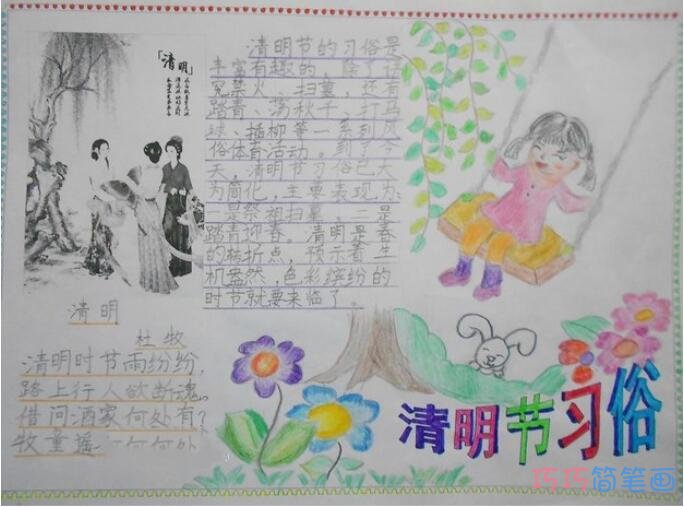 清明节的习俗是
丰富有趣的，除了讲
究禁火、扫墓，还有
踏青、荡秋千、打马
球、插柳等一系列风
俗体育活动。到了今
天，清明节习俗已大
为简化，主要表现为：
一是祭祖扫墓。二是
踏青迎春。清明是春
的转折点，预示着生
机盎然，色彩缤纷的
时节就要来临了。
「清明」
清明
杜牧
清明时节雨纷纷，
路上行人欲断魂。
借问酒家何处有？
牧童摇
清明节习俗
巧巧简笔画